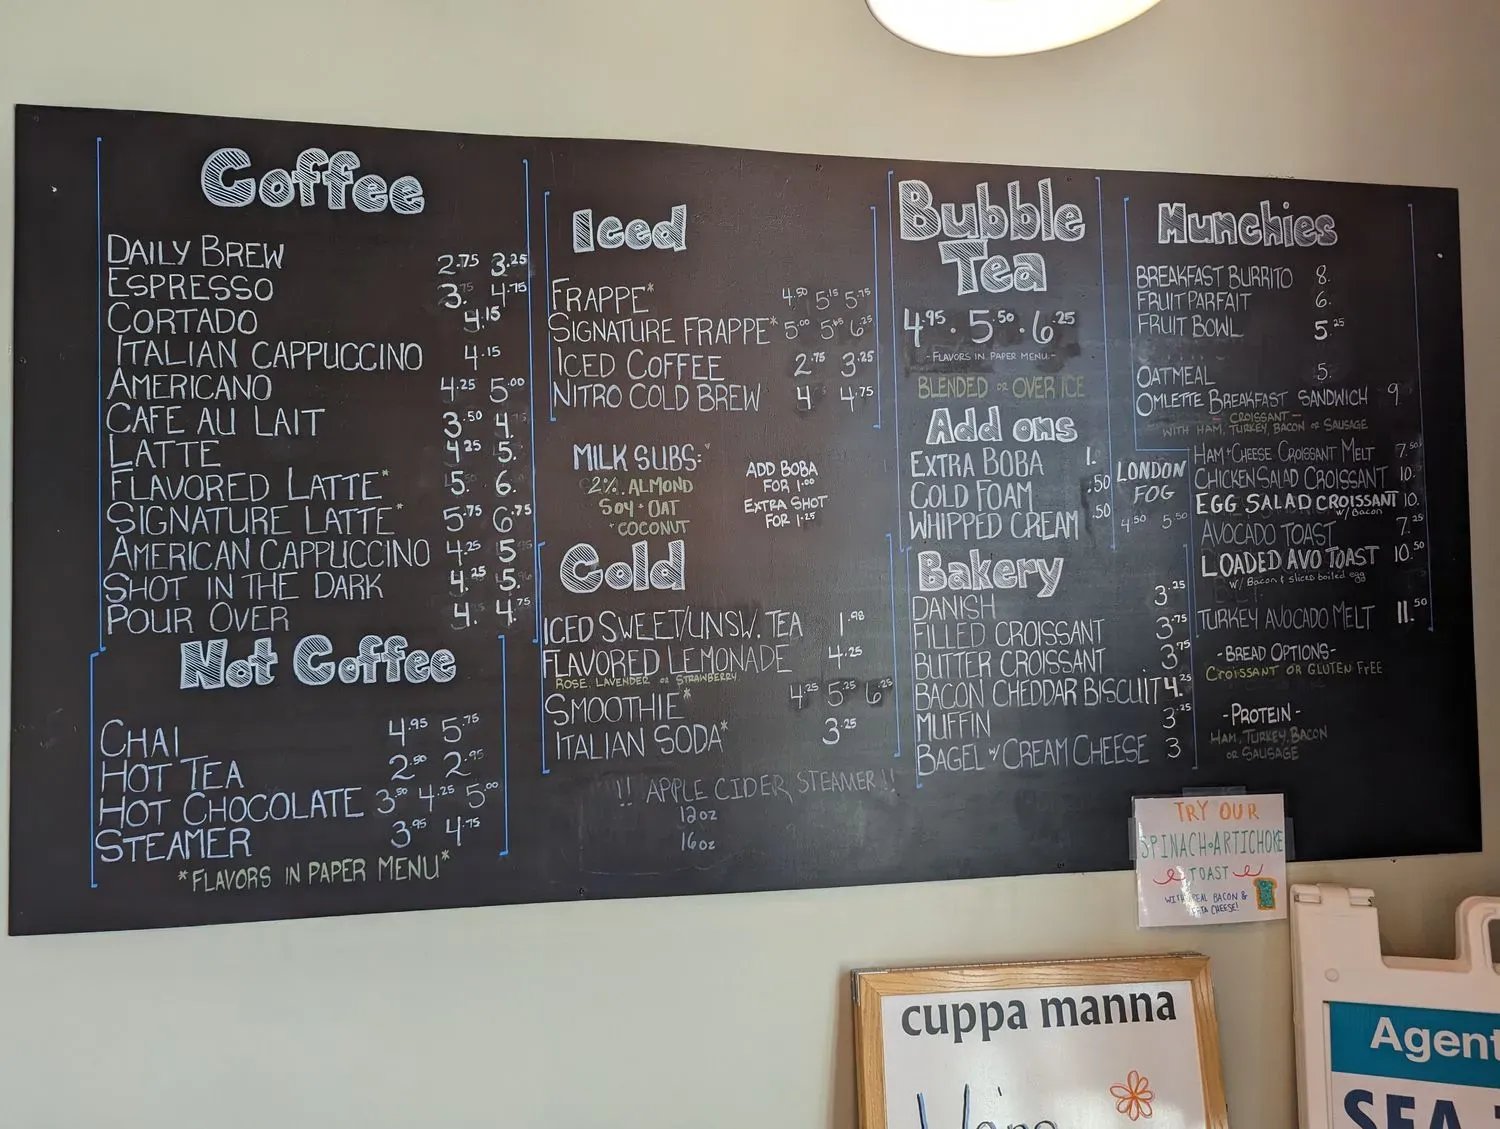 Coffee
DAILY BREW 2.75 3.25
ESPRESSO 3.75 4.75
CORTADO 4.15
ITALIAN CAPPUCCINO 4.15
AMERICANO 4.25 5.00
CAFE AU LAIT 3.50 4.
LATTE 4.25 5.
FLAVORED LATTE* 5. 6.
SIGNATURE LATTE* 5.75 6.75
AMERICAN CAPPUCCINO 4.25 5
SHOT IN THE DARK 4.25 5.
POUR OVER 4. 4.75
Not Coffee
CHAI 4.95 5.75
HOT TEA 2.50 2.95
HOT CHOCOLATE 3.50 4.25 5.00
STEAMER 3.95 4.75
*FLAVORS IN PAPER MENU*
Iced
FRAPPE* 4.50 5.15 5.75
SIGNATURE FRAPPE* 5.00 6.25
ICED COFFEE 2.75 3.25
NITRO COLD BREW 4 4.75
MILK SUBS:
2%. ALMOND
SOY + OAT
* COCONUT
ADD BOBA
FOR 1.00
EXTRA SHOT
FOR 1.25
Cold
ICED SWEET/UNSW. TEA 1.98
FLAVORED LEMONADE 4.25
ROSE, LAVENDER or STRAWBERRY
SMOOTHIE* 4.25 5.25 6.25
ITALIAN SODA* 3.25
!! APPLE CIDER STEAMER !!
12oz
16oz
Bubble
Tea
4.95 • 5.50 • 6.25
-FLAVORS IN PAPER MENU-
BLENDED or OVER ICE
Add ons
EXTRA BOBA 1.
COLD FOAM .50
WHIPPED CREAM .50
LONDON
FOG
4.50 5.50
Bakery
DANISH 3.25
FILLED CROISSANT 3.75
BUTTER CROISSANT 3.75
BACON CHEDDAR BISCUIT 4.25
MUFFIN 3.25
BAGEL w/ CREAM CHEESE 3
Munchies
BREAKFAST BURRITO 8.
FRUIT PARFAIT 6.
FRUIT BOWL 5.25
OATMEAL 5.
OMLETTE BREAKFAST SANDWICH 9.
- CROISSANT -
WITH HAM, TURKEY, BACON or SAUSAGE
HAM + CHEESE CROISSANT MELT 7.50
CHICKEN SALAD CROISSANT 10.
EGG SALAD CROISSANT 10.
w/ Bacon
AVOCADO TOAST 7.25
LOADED AVO TOAST 10.50
w/ Bacon & sliced boiled egg
TURKEY AVOCADO MELT 11.50
-BREAD OPTIONS-
CROISSANT OR GLUTEN FREE
-PROTEIN-
HAM, TURKEY, BACON
OR SAUSAGE
TRY OUR
SPINACH+ARTICHOKE
TOAST
BACON &
CHEESE!
cuppa manna
Agent
SEA